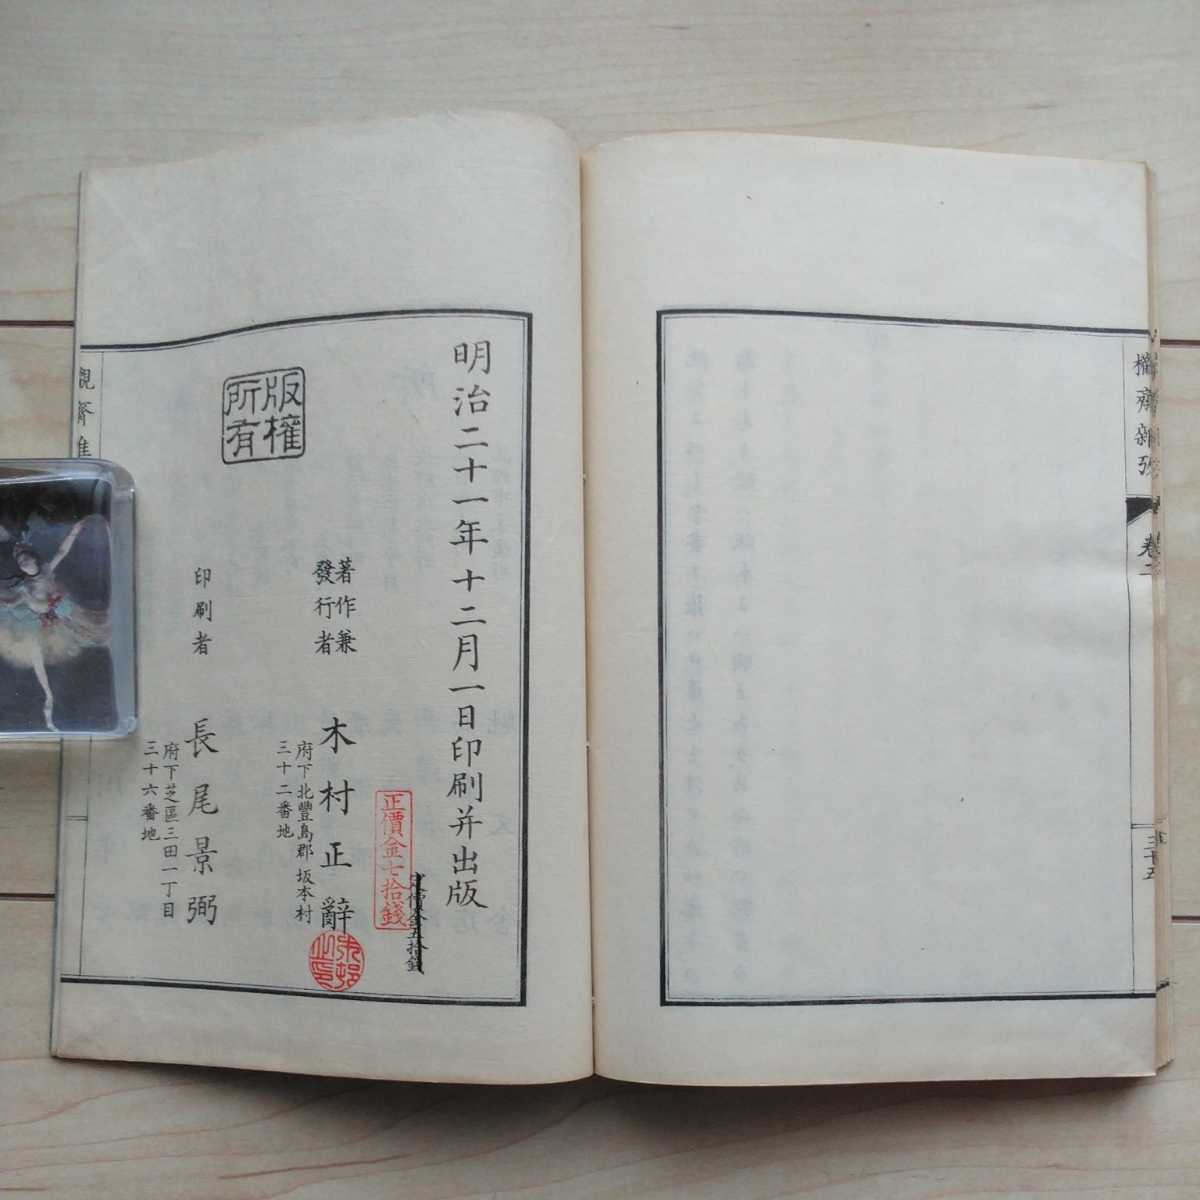 欟齋雜攷
卷二
三十五
明治二十一年十二月一日印刷并出版
定價金五拾錢
正價金七拾錢
著作兼
發行者
木村正辭
府下北豐島郡坂本村
三十二番地
版權
所有
印刷者
長尾景弼
府下芝區三田一丁目
三十六番地